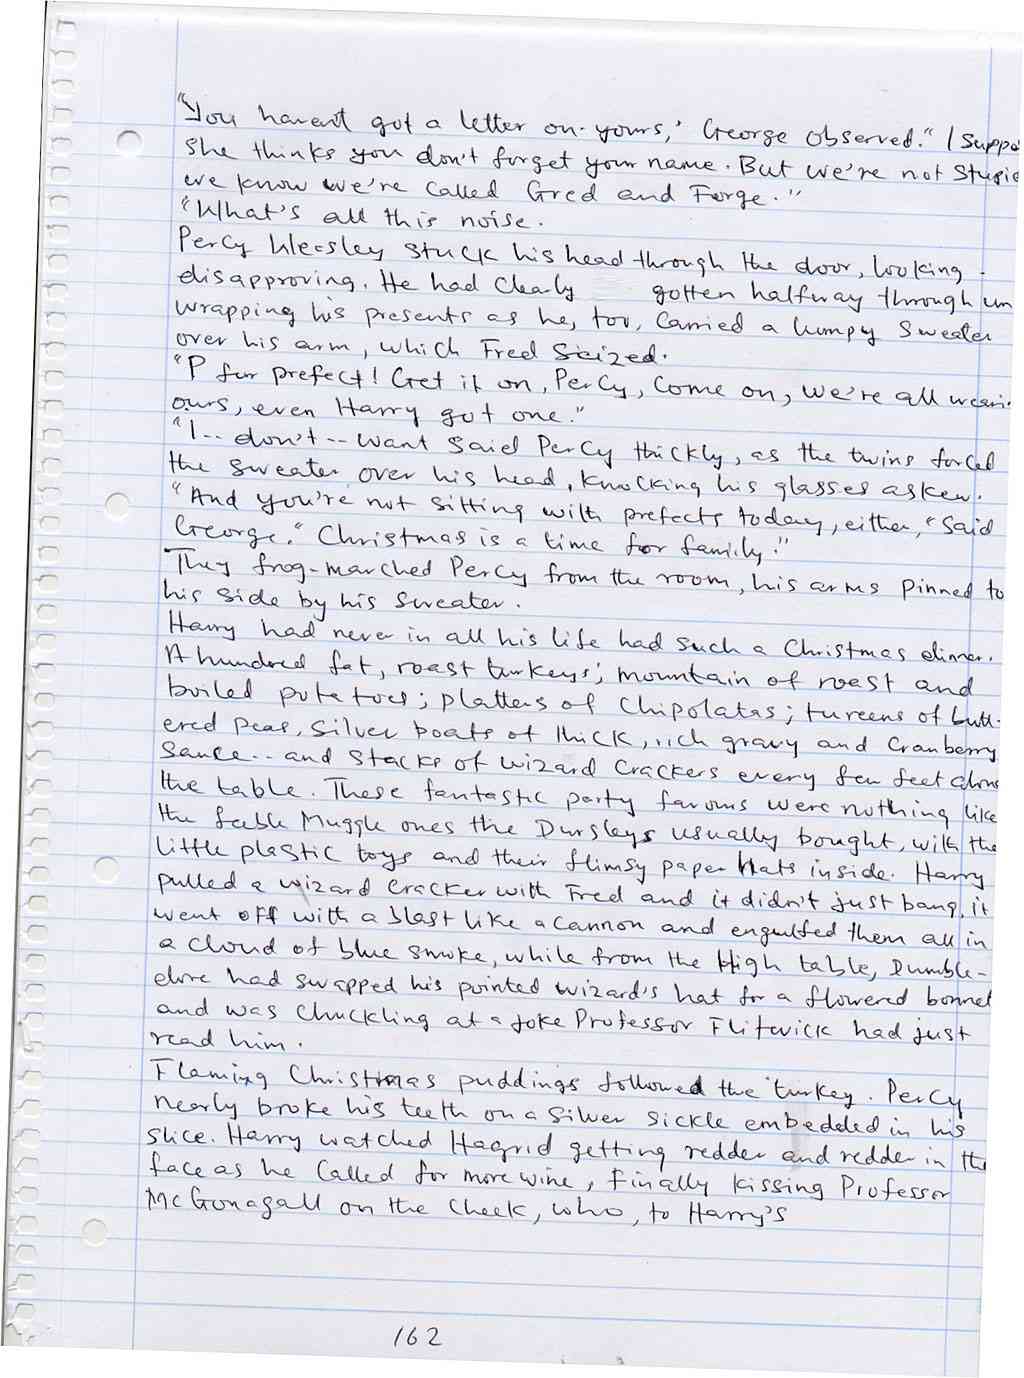 "You havent got a letter on yours,' George observed. "I suppo
she thinks you don't forget your name. But we're not stupid
we know we're called Gred and Forge."
"What's all this noise.
Percy Weesley stuck his head through the door, looking
disapproving. He had clearly gotten halfway through un
wrapping his presents as he, too, carried a lumpy sweater
over his arm, which Fred seized.
"P for prefect! Get it on, Percy, come on, we're all weari
ours, even Harry got one."
"I -- don't -- want said Percy thickly, as the twins forced
the sweater over his head, knocking his glasses askew.
"And you're not sitting with prefects today, either, "said
George. "Christmas is a time for family."
They frog-marched Percy from the room, his arms pinned to
his side by his sweater.
Harry had never in all his life had such a Christmas dinner.
A hundred fat, roast turkeys; mountain of roast and
boiled potatoes; platters of chipolatas; tureens of butt-
ered peas, silver boats of thick, rich gravy and cranberry
sauce -- and stacks of wizard crackers every few feet along
the table. These fantastic party favours were nothing like
the feeble Muggle ones the Dursleys usually bought, with the
little plastic toys and their flimsy paper hats inside. Harry
pulled a wizard cracker with Fred and it didn't just bang, it
went off with a blast like a cannon and engulfed them all in
a cloud of blue smoke, while from the High table, Dumble-
dore had swapped his pointed wizard's hat for a flowered bonnet
and was chuckling at a joke Professor Flitwick had just
read him.
Flaming Christmas puddings followed the turkey. Percy
nearly broke his teeth on a silver sickle embedded in his
slice. Harry watched Hagrid getting redder and redder in the
face as he called for more wine, finally kissing Professor
McGonagall on the cheek, who, to Harry's
162